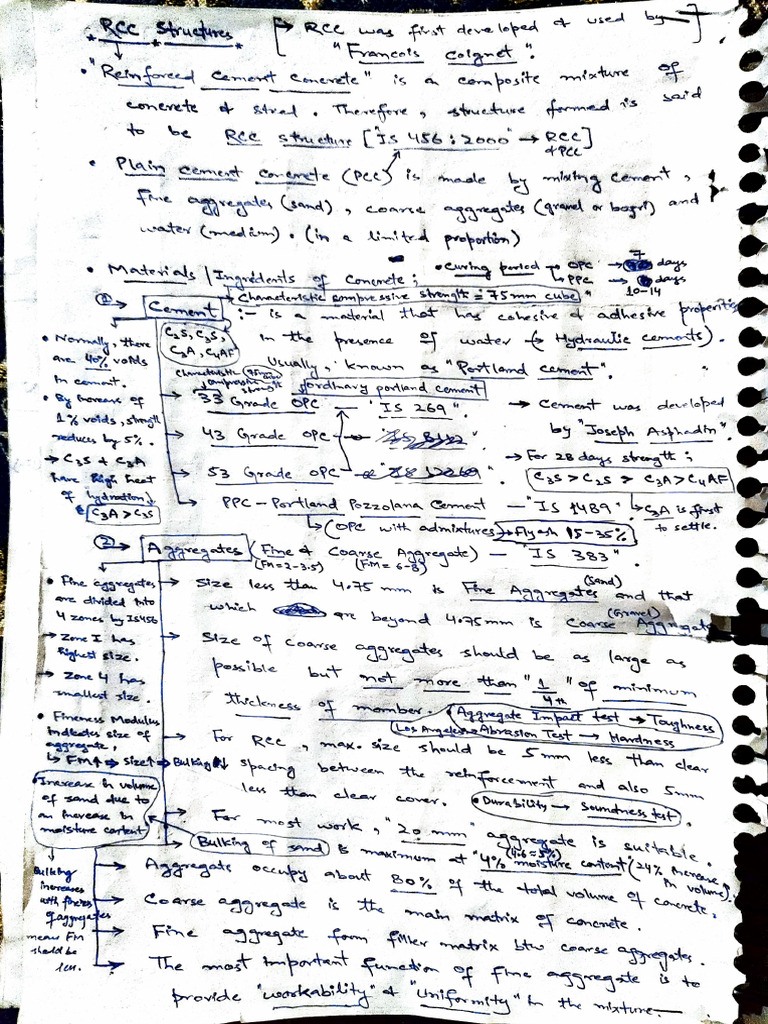 RCC Structures
→ RCC was first developed & used by
"Francois Coignet".
• "Reinforced cement concrete" is a composite mixture of
concrete & steel. Therefore, structure formed is said
to be RCC structure ["IS 456:2000" → RCC]
& PCC
• Plain cement concrete (PCC) is made by mixing cement,
fine aggregates (sand), coarse aggregates (gravel or bajri) and
water (medium). (in a limited proportion)
• Materials / Ingredients of Concrete;
• Curing period → OPC → 7 days
→ PPC → days
10-14
① → Cement
→ Characteristic compressive strength = 75mm cube"
:- is a material that has cohesive & adhesive properties
in the presence of water → (Hydraulic cements).
Usually, known as "Portland cement".
C2S, C3S,
C3A, C4AF
Characteristic
compressive
strength
ordinary portland cement
→ 33 Grade OPC — "IS 269".
→ 43 Grade OPC
→ 53 Grade OPC
→ PPC – Portland Pozzolana Cement — "IS 1489".
↳ (OPC with admixtures) → Flyash 15-35%
→ Cement was developed
by "Joseph Asphadin".
→ For 28 days strength;
C3S > C2S > C3A > C4AF
↳ C3A is first
to settle.
• Normally, there
are 40% voids
in cement.
• By increase of
1% voids, strength
reduces by 5%.
→ C3S & C3A
have high heat
of hydration
C3A > C3S
② → Aggregates (Fine & Coarse Aggregate) — "IS 383".
(FM=2-3.5) (FM=6-8)
→ Size less than 4.75 mm is Fine Aggregates (sand) and that
which are beyond 4.75mm is Coarse Aggregate (Gravel)
→ Size of coarse aggregates should be as large as
possible but not more than "1/4th" of minimum
thickness of member.
• Aggregate Impact test → Toughness
Los Angeles → Abrasion Test → Hardness
→ For RCC, max. size should be 5 mm less than clear
spacing between the reinforcement and also 5mm
less than clear cover.
• Durability → Soundness test.
→ For most work, "20 mm" aggregate is suitable.
→ Bulking of sand is maximum at "4% moisture content (24% increase in volume).
(4.6 ≈ 5%)
→ Aggregate occupy about 80% of the total volume of concrete.
→ Coarse aggregate is the main matrix of concrete.
→ Fine aggregate form filler matrix btw coarse aggregates.
→ The most important function of fine aggregate is to
provide "workability" & "Uniformity" in the mixture.
• Fine aggregates
are divided into
4 zones by IS456
→ Zone I has
highest size.
→ Zone 4 has
smallest size.
• Fineness Modulus
indicates size of
aggregate,
↳ FM↑ → Size↑ → Bulking↓
• Increase in volume
of sand due to
an increase in
moisture content
Bulking
increases
with fineness
of aggregates
means FM
should be
less.